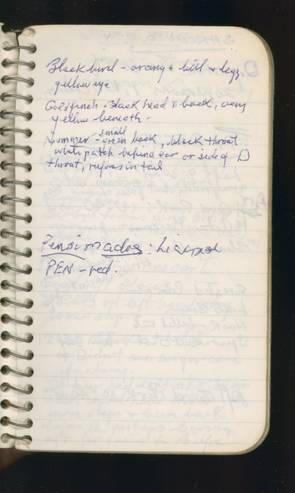 Blackbird - orange bill & legs,
yellow eye
Goldfinch - black head & back, very
yellow beneath.
small
green back, black throat
white patch behind ear or side of
throat, rufous in tail
Pensionados:
PEN - red.